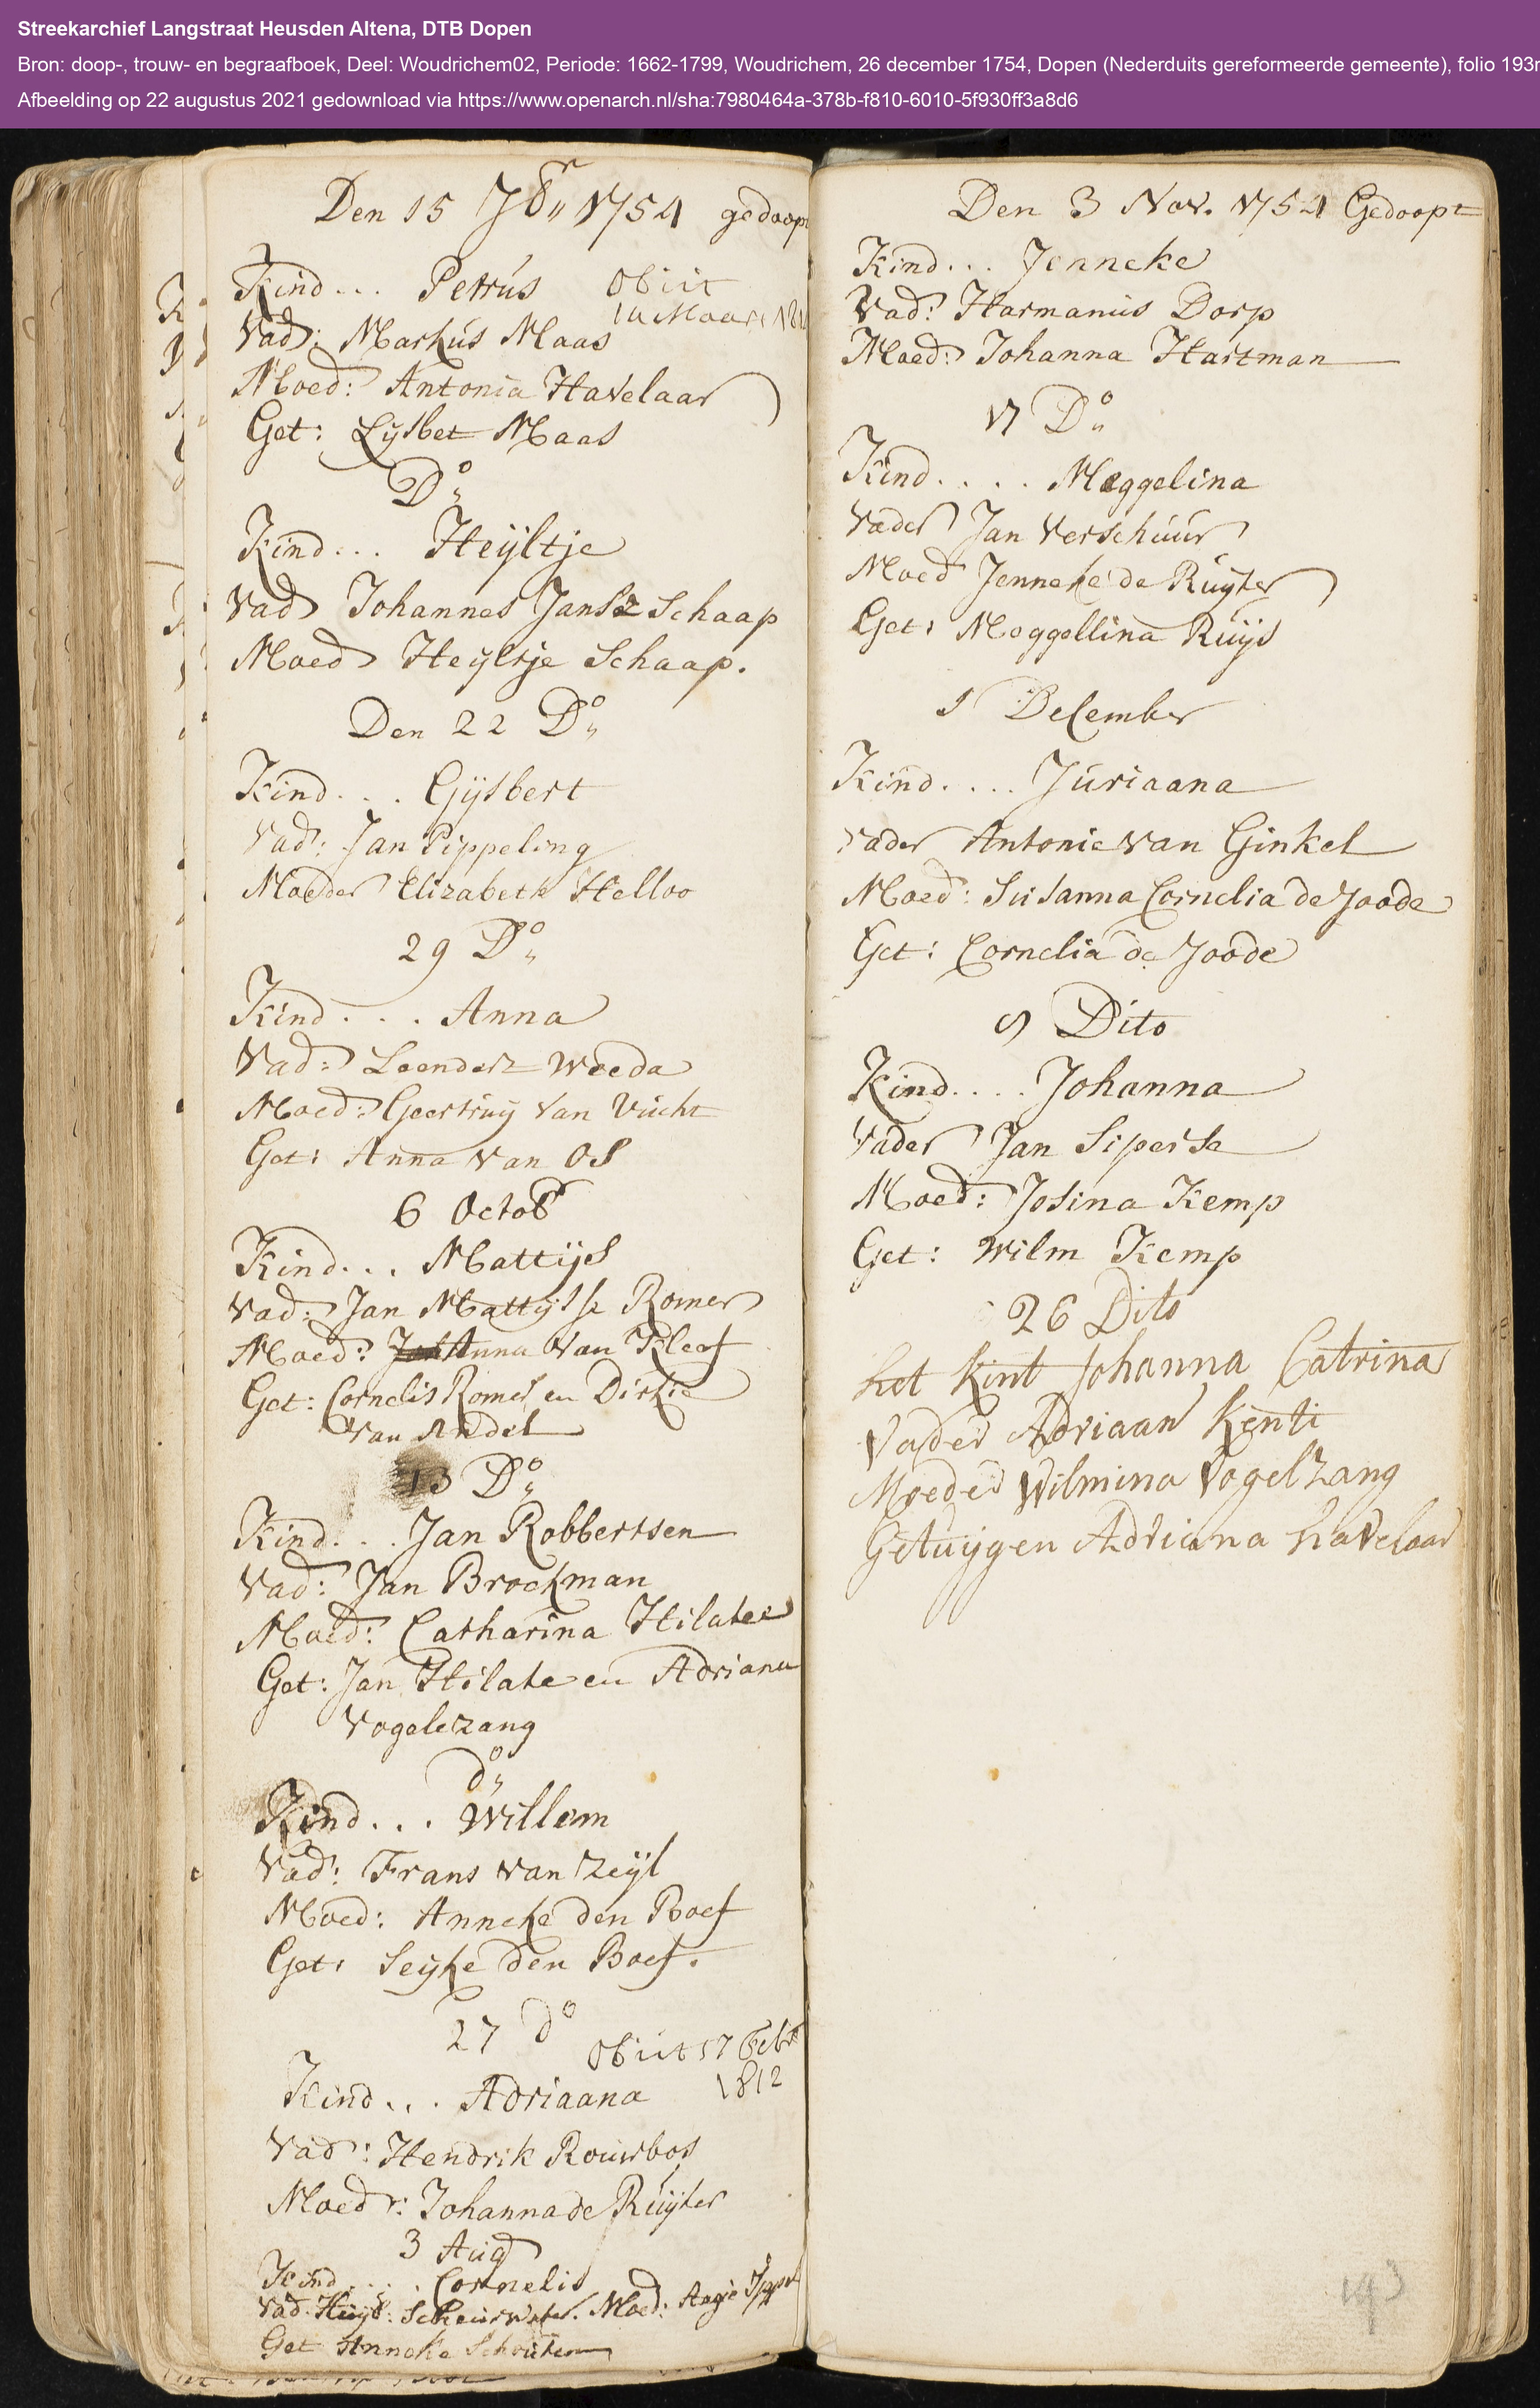 Streekarchief Langstraat Heusden Altena, DTB Dopen
Bron: doop-, trouw- en begraafboek, Deel: Woudrichem02, Periode: 1662-1799, Woudrichem, 26 december 1754, Dopen (Nederduits gereformeerde gemeente), folio 193r
Afbeelding op 22 augustus 2021 gedownload via https://www.openarch.nl/sha:7980464a-378b-f810-6010-5f930ff3a8d6
Den 15 7br 1754 gedoopt
Kind... Petrus obiit
Vad: Markus Maas
Moed: Antonia Havelaar
Get: Lysbet Maas
Do
Kind... Heyltje
Vad Johannes Jansz Schaap
Moed Heyltje Schaap.
Den 22 Do
Kind... Gysbert
Vad: Jan Pippeling
Moeder Elizabeth Helloo
29 Do
Kind... Anna
Vad: Leendert Weeda
Moed: Geertruy van Vucht
Get: Anna van Os
6 Octob
Kind... Mattijs
Vad: Jan Mattijsse Romer
Moed: Anna van Kleef
Get: Cornelis Romer en Dirkie
van Andel
13 Do
Kind... Jan Robbertsen
Vad: Jan Brockman
Moed: Catharina Hilake
Get: Jan Hilake en Adriana
Vogelezang
do
Kind... Willem
Vad: Frans van Zeyl
Moed: Anneke den Boef
Get: Seyke den Boef.
27 do
obiit 17 Febr
1812
Kind... Adriaana
Vad: Hendrik Rouwbos
Moedr: Johanna de Ruyter
3 Aug
Kind.... Cornelis
Vad. Huyb: Scheurwater. Moed: Aagje
Get Anneke Schouten
Den 3 Nov. 1754 Gedoopt
Kind... Jenneke
Vad: Harmanus Dorp
Moed: Johanna Hartman
17 Do
Kind.... Meggelina
Vader Jan Verschuur
Moed Jenneke de Ruyter
Get: Meggellina Ruys
1 December
Kind.... Juriaana
Vader Antonie van Ginkel
Moed: Susanna Cornelia de Joode
Get: Cornelia de Joode
9 Dito
Kind.... Johanna
Vader Jan Siperse
Moed: Josina Kemp
Get: Wilm Kemp
26 Dito
het kint Johanna Catrina
Vader Adriaan Kenti
Moeder Wilmina Vogelzang
Getuygen Adriana havelaar
193